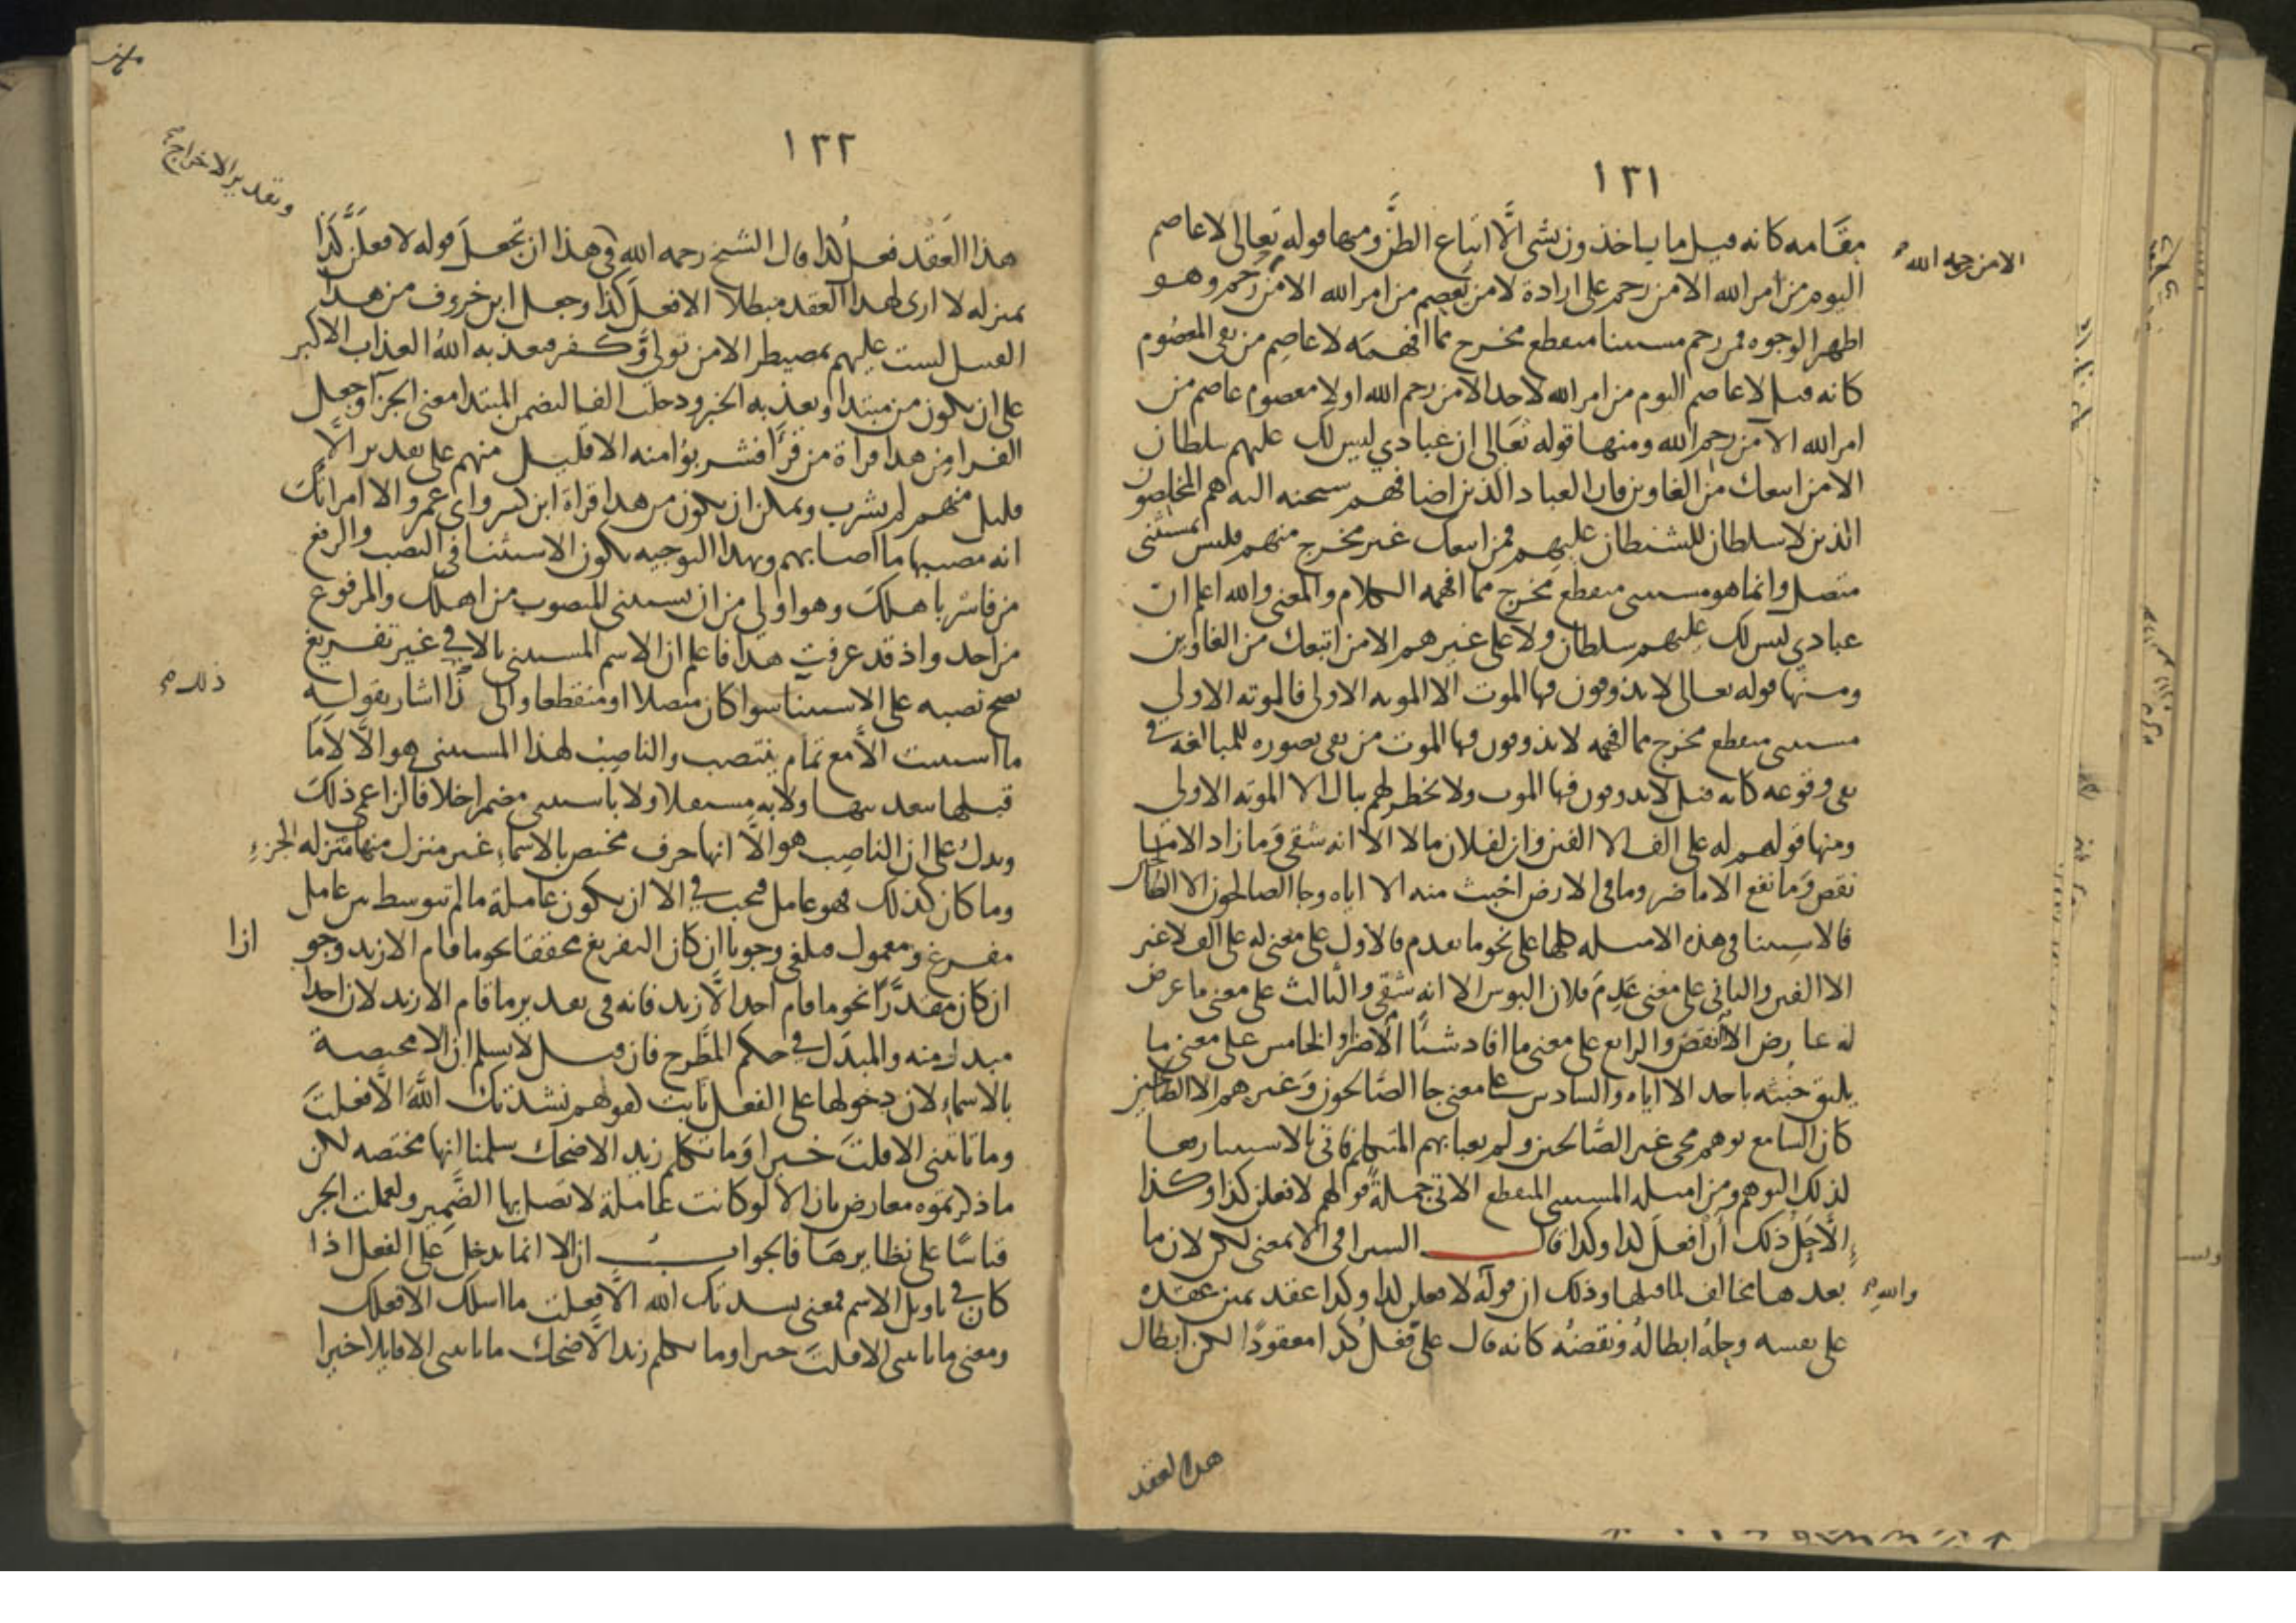 ١٣١
مقامه كانه قيل ما ياخذون بشي الَّا اتباع الظن ومنها قوله تعالى لا عاصم
اليوم من امر الله الا من رحم على ارادة لا من يعصم من امر الله الا من رحم وهو
الا من رحمه الله
اظهر الوجوه فمن رحم مستثنا منقطع مخرج مما افهمه لا عاصم من نفي المعصوم
كانه قيل لا عاصم اليوم من امر الله لاحد الا من رحم الله او لا معصوم عاصم من
امر الله الا من رحم الله ومنها قوله تعالى ان عبادي ليس لك عليهم سلطان
الا من اتبعك من الغاوين فان العباد الذين اضافهم سبحنه اليه هم المخلصون
الذين لا سلطان للشيطان عليهم فمن اتبعك غير مخرج منهم فليس بمستثنى
متصل وانما هو مستثنى منقطع مخرج مما افهمه الكلام والمعنى والله اعلم ان
عبادي ليس لك عليهم سلطان ولا على غيرهم الا من اتبعك من الغاوين
ومنها قوله تعالى لا يذوقون فيها الموت الا الموته الاولى فالموته الاولى
مستثنى منقطع مخرج مما افهمه لا يذوقون فيها الموت من نفي تصوره للمبالغة في
نفي وقوعه كانه قيل لا يذوقون فيها الموت ولا يخطر لهم ببال الا الموته الاولى
ومنها قولهم له على الف الا الفين وان لفلان مالا الا انه شقي وما زاد الا ما
نقص وما نفع الا ما ضر وما في الارض اخبث منه الا اياه وجا الصالحون الا الطالحين
فالاستثنا في هذه الامثله كلها على نحو ما تقدم فالاول على معنى له على الف لا غير
الا الفين والثاني على معنى عدم فلان البوس الا انه شقي والثالث على معنى ما عرض
له عارض الا النقص والرابع على معنى ما افاد شيئًا الا ضرا والخامس على معنى ما
يليق خبثه باحد الا اياه والسادس على معنى جا الصالحون وغيرهم الا الطالحين
كان السامع توهم مجي غير الصَّالحين ولم يعبا بهم المتكلم فاتى بالاستثنا رفعا
لذلك التوهم ومن امثله المستثنى المنقطع الاتي جملةً قولهم لا فعلن كذا وكذا
الَّا حِلُّ ذلك أن أفعلَ كذا وكذا قال السيرافي الا بمعنى لكن لان ما
بعدها مخالف لما قبلها وذلك ان قوله لا فعلن كذا وكذا عقد يمين عقده
والله
على نفسه وحِلهُ ابطالهُ ونقضهُ كانه قال على فعلُ كذا معقودًا لكن ابطال
هذا العقد
١٣٢
هذا العَقْد فعلُ كذا قال الشيخ رحمه الله في هذا ان تجعلَ قوله لافعلن كذا
وتقدير الاخراج
بمنزله لا ارى لهذا العقد مبطلا الا فعلَ كذا وجعل ابن خروف من هذا
القبيل لست عليهم بمصيطر الا من تولى وكفر فيعذبه اللهُ العذاب الاكبر
على ان يكون من مبتدا ويعذبه الخبر ودخلت الفا لتضمن المبتدا معنى الجزا وجعل
الفرا من هذا قراة من قرا فشربوا منه الا قليل منهم على تقدير الَّا
قليل منهم لم يشرب ويمكن ان يكون من هذا قراة ابن كثير وابي عمرو الا امراتُك
انه مصيبها ما اصابهم وبهذا التوجيه يكون الاستثنا في النصب والرفع
من فاسْر باهلك وهو اولى من ان يستثنى المنصوب من اهلك والمرفوع
من احد واذ قد عرفت هذا فاعلم ان الاسم المستثنى بالا في غير تفريغ
يصح نصبه على الاستثنا سوا كان متصلا او منقطعا والى ذا اشار بقوله
ذلك
ما استثنت الا مع تمام ينتصب والناصِب لهذا المستثنى هو الَّا لا مَا
قبلها بعد بها ولا به مستقلا ولا باستثنى مضمرا خلافا لزاعمي ذلكَ
ويدلُ على ان الناصِب هو الَّا انها حرف مختص بالاسماء غير منزل منها منزله الجزء
وما كان كذلك فهو عامل فيجب في الا ان يكون عاملة ما لم تتوسط بين عامل
مفرغ ومعمول فيلغى وجوبا ان كان التفريغ محققا نحو ما قام الا زيد وجو
ازا
ان كان مقدَّرًا نحو ما قام احد الَّا زيد فانه في تقدير ما قام الا زيد لان احدا
مبدل منه والمبدَل في حكم المطَّرح فان قيل لا نسلم ان الا مختصة
بالاسماء لان دخولها على الفعل ثابت كقولهم نشدتك اللَّهَ الَّا فعلتَ
وما تاتيني الا قلتَ خيرا وَما تكلم زيد الا ضحك سلمنا انها مختصه لكن
ما ذكرتموه معارض بان الا لو كانت عاملة لاتصل بها الضَّمير ولعملت الجر
قياسًا على نظايرهَا فالجواب ان الا انما يدخل على الفعل اذا
كان في تاويل الاسم فمعنى نشدتك الله الَّا فعلت ما اسلك الا فعلك
ومعنى ما تاتيني الا قلتَ خيرا وما تكلم زيد الَّا ضحك ما تاتيني الا قايلا خيرا